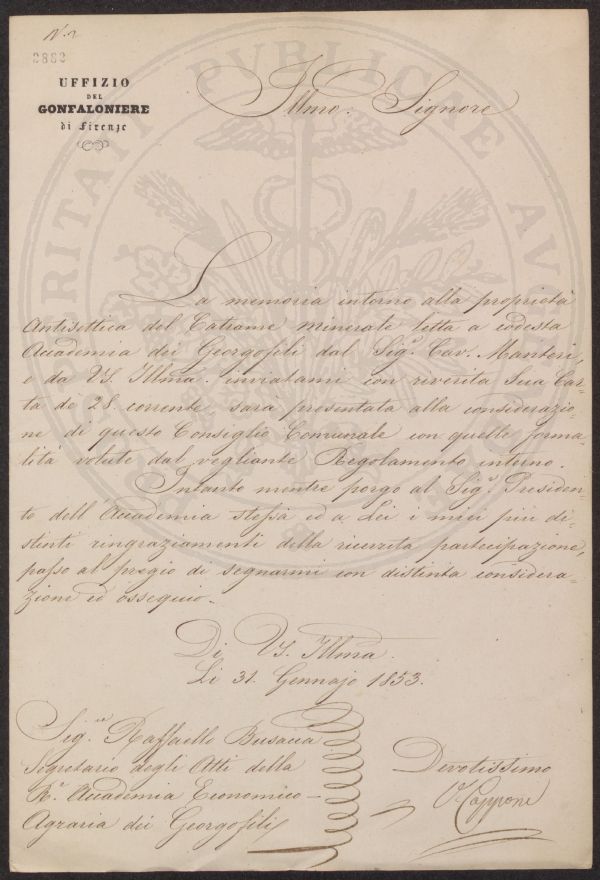 N. 2
2882
UFFIZIO
DEL
GONFALONIERE
di Firenze
Illmo. Signore
La memoria intorno alla proprietà
Antisettica del Catrame minerale letta a codesta
Accademia dei Georgofili dal Sigr. Cav. Manteri,
e da VS. Illma. inviatami con riverita Sua Car-
ta de' 28 corrente, sarà presentata alla considerazio-
ne di questo Consiglio Comunale con quelle forma-
lità volute dal vegliante Regolamento interno.
Intanto mentre porgo al Sigr. Presiden-
te dell'Accademia stessa ed a Lei i miei più di-
stinti ringraziamenti della riverita partecipazione,
passo al pregio di segnarmi con distinta considera-
zione ed ossequio.
Di VS. Illma.
Li 31. Gennajo 1853.
Sig.re Raffaello Busacca
Segretario degli Atti della
R. Accademia Economico-
Agraria dei Georgofili
Devotissimo
Capponi